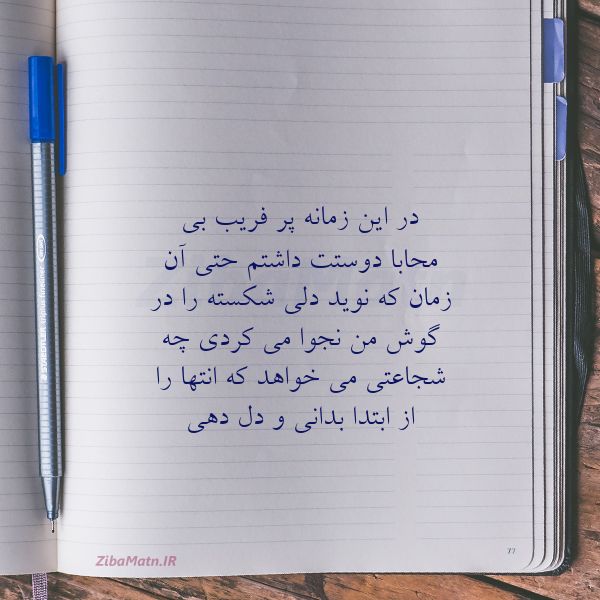 در این زمانه پر فریب بی
محابا دوستت داشتم حتی آن
زمان که نوید دلی شکسته را در
گوش من نجوا می کردی چه
شجاعتی می خواهد که انتها را
از ابتدا بدانی و دل دهی
77
ZibaMatn.IR